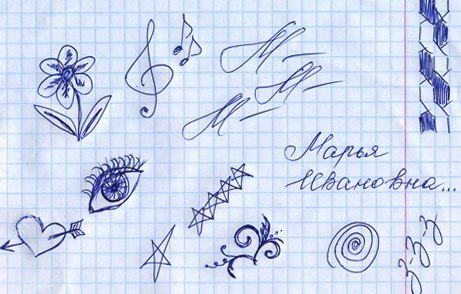 М-
М-
М-
Марья
Ивановна...
З-З-З